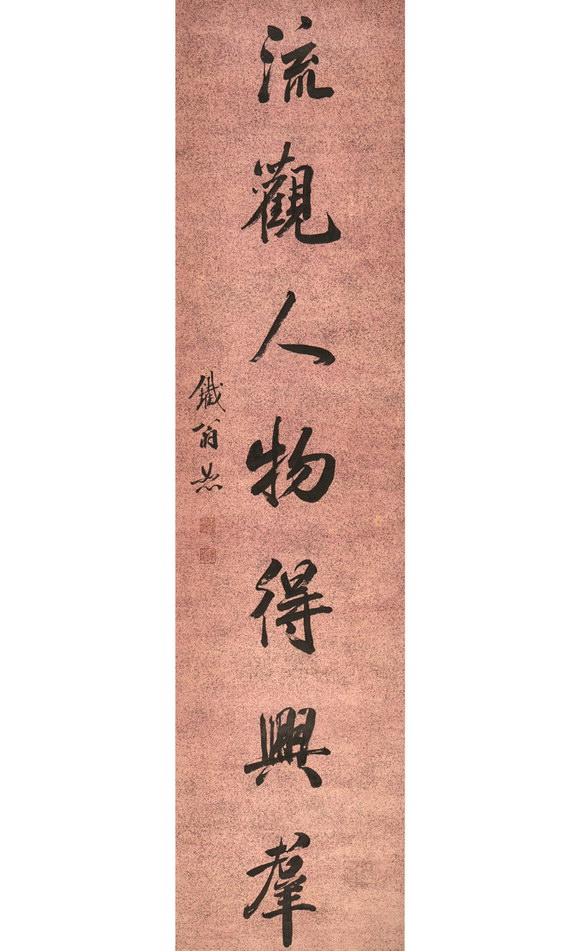 流觀人物得興羣
鐵翁